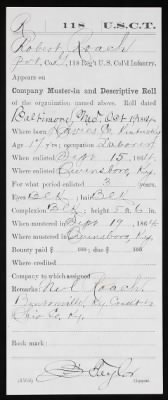 R 118 U.S.C.T.
Robert Roach
Pvt, Co. , 118 Reg't U.S. Col'd Infantry.
Appears on
Company Muster-in and Descriptive Roll
of the organization named above. Roll dated
Baltimore, Md. Oct 19, 1864
Where born Daviess Co. Kentucky
Age 17 y'rs; occupation Laborer
When enlisted Sept 15, 1864
Where enlisted Owensboro, Ky.
For what period enlisted 3 years.
Eyes Blk ; hair Blk
Complexion Blk ; height 5 ft. 6 in.
When mustered in Sept 19, 1864
Where mustered in Owensboro, Ky.
Bounty paid $ 100; due $ 100
Where credited
Company to which assigned
Remarks: Roach
Ky. Credit
Ohio Co, Ky.
Book mark:
Taylor